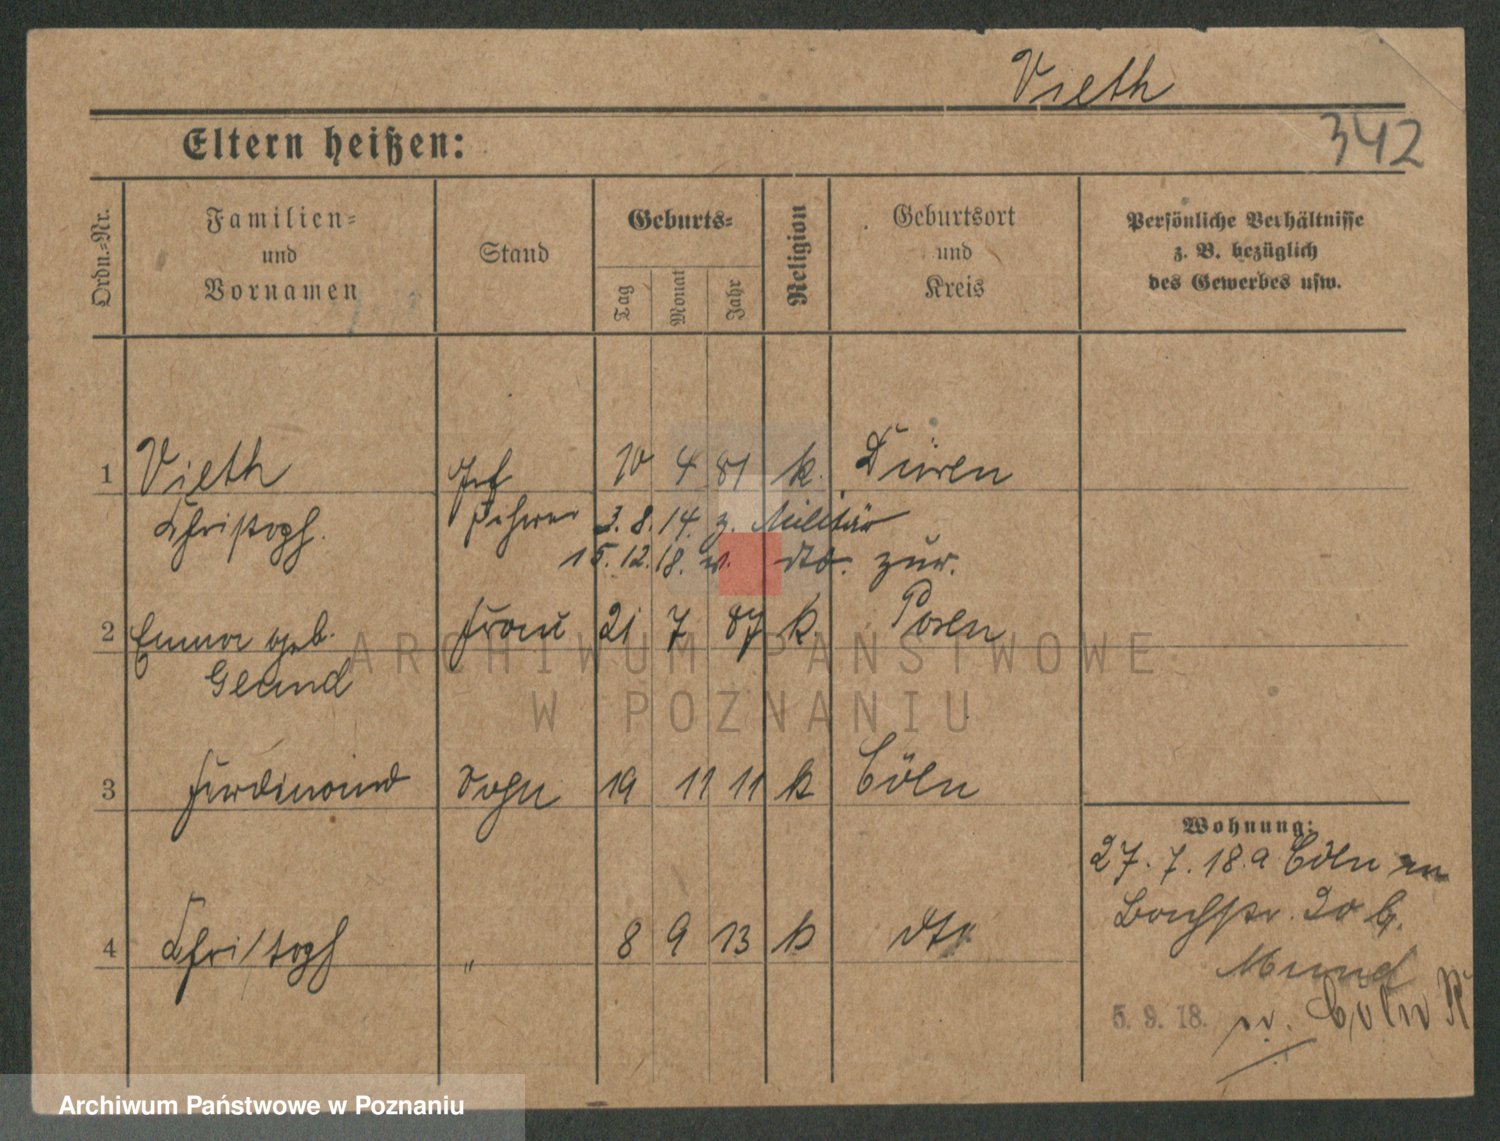 Vieth
Eltern heißen:
342
Ordn.-Nr.
Familien- und Vornamen
Stand
Geburts-
Tag
Monat
Jahr
Religion
Geburtsort und Kreis
Persönliche Verhältnisse z. B. bezüglich des Gewerbes usw.
1 Vieth 10 4 81 k. Düren
Christoph. 3. 8. 14. z. Militär
15. 12. 18. v. dto. zur.
2 Emma geb. Frau 21 7 87 k. Posen
Gland
3 Ferdinand Sohn 19 11 11 k Cöln
4 Christoph " 8 9 13 k dto
Wohnung:
27. 7. 18. a Cöln
Bachstr. 20 b.
Mund
5. 9. 18. Cöln
ARCHIWUM PAŃSTWOWE
W POZNANIU
Archiwum Państwowe w Poznaniu